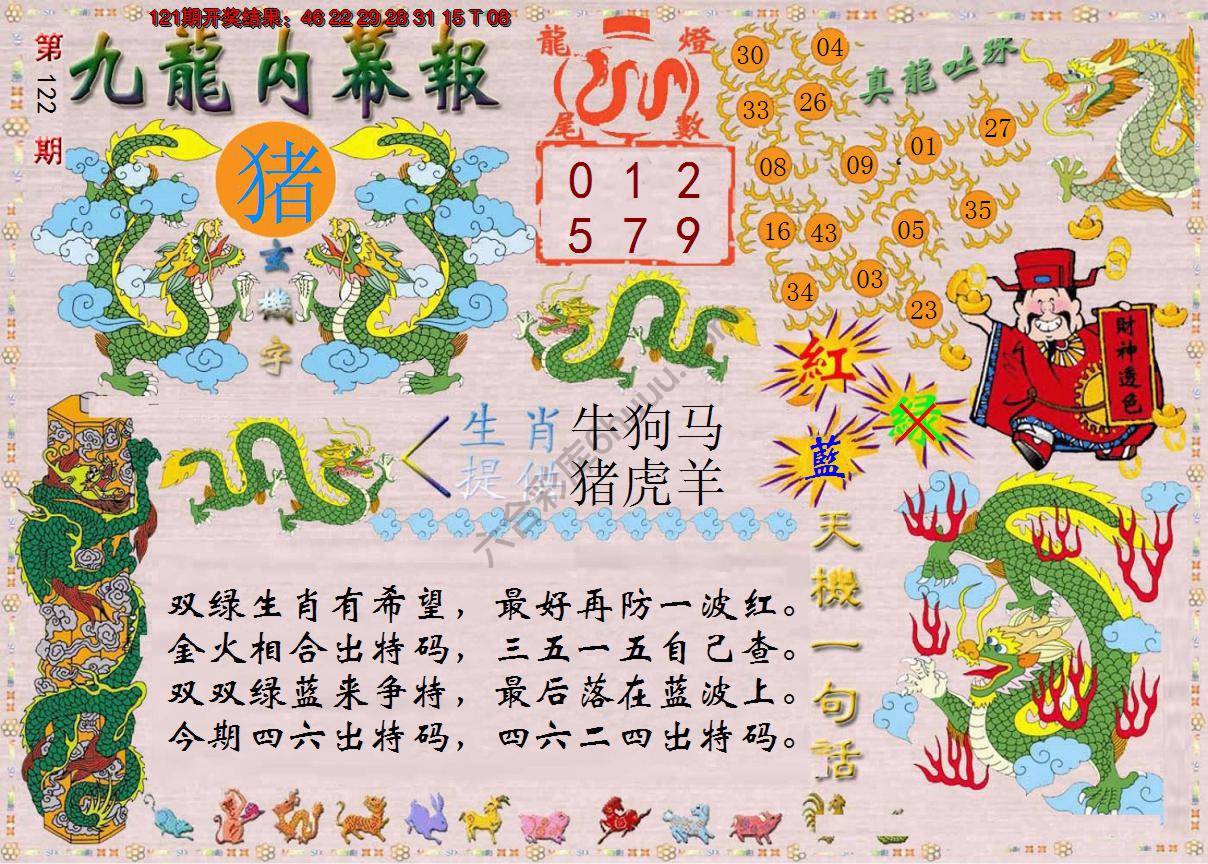 121期开奖结果：46 22 29 28 31 15 T 08
第122期
九龍内幕報
猪
玄機字
龍燈尾數
0 1 2
5 7 9
真龍吐珠
30 04
33 26
27
01
08 09
35
16 43 05
03
34
23
財神透色
紅
绿
藍
生肖 牛狗马
提供 猪虎羊
六合彩库
天機一句話
双绿生肖有希望，最好再防一波红。
金火相合出特码，三五一五自己查。
双双绿蓝来争特，最后落在蓝波上。
今期四六出特码，四六二四出特码。